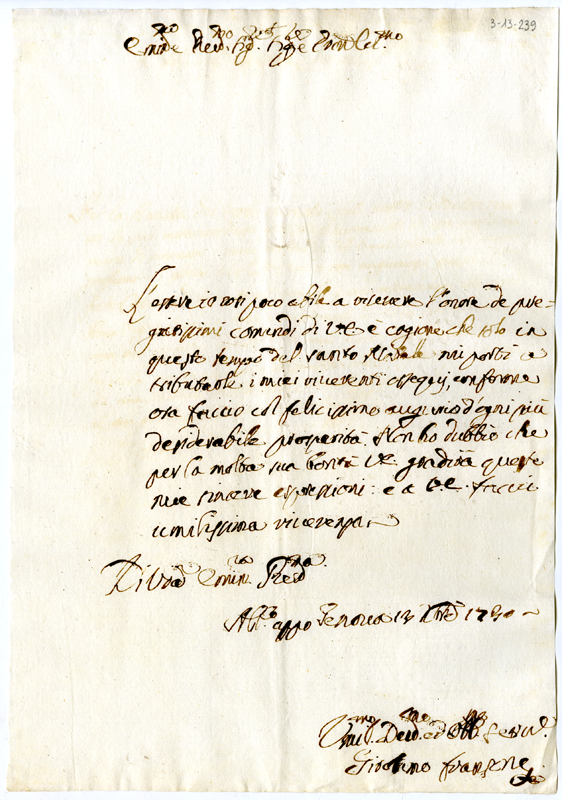 3-13-239
Emin.mo e Rev.mo Sig.re Sig.re e Pron Col.mo
L'essere io così poco abile a ricevere l'onore de pre-
giatissimi comandi di V.E. è cagione che solo in
questo tempo del santo Natale mi porti a
tributarle i miei riverenti ossequj, conforme
ora faccio col felicissimo augurio d'ogni più
desiderabile prosperità. Non ho dubbio che
per la molta sua bontà V.E. gradirà queste
mie sincere espressioni: e a V.E. faccio
umilissima riverenza.
Di Vra Emin.za Rev.ma
appo Genova 13 Xbre
Umil.mo Dev.mo ed Obb.mo Serv.
Girolamo Franzone